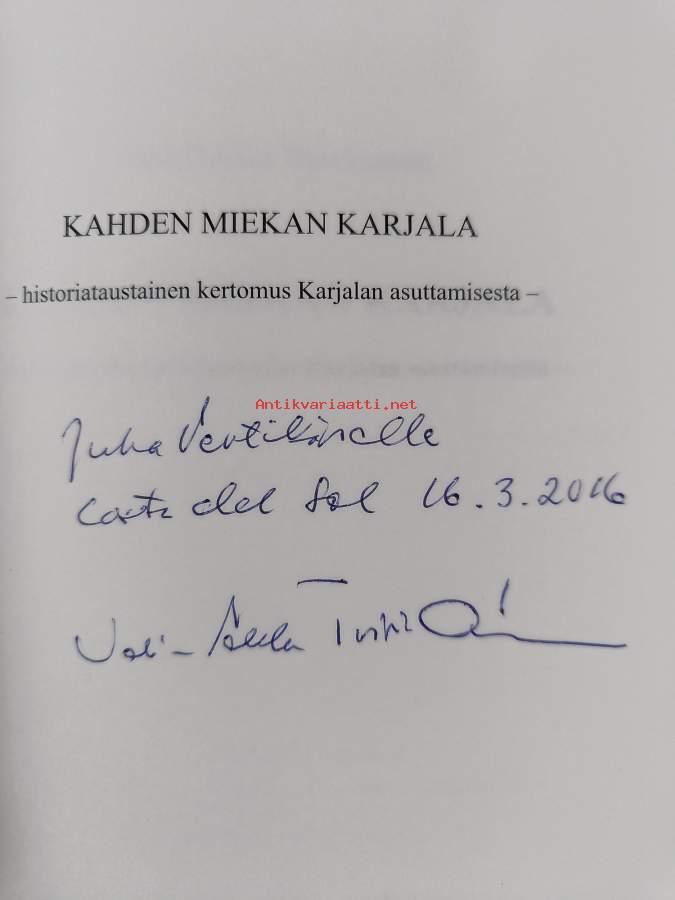 KAHDEN MIEKAN KARJALA
– historiataustainen kertomus Karjalan asuttamisesta –
Antikvariaatti.net
Juha
Costa del Sol 16.3.2016